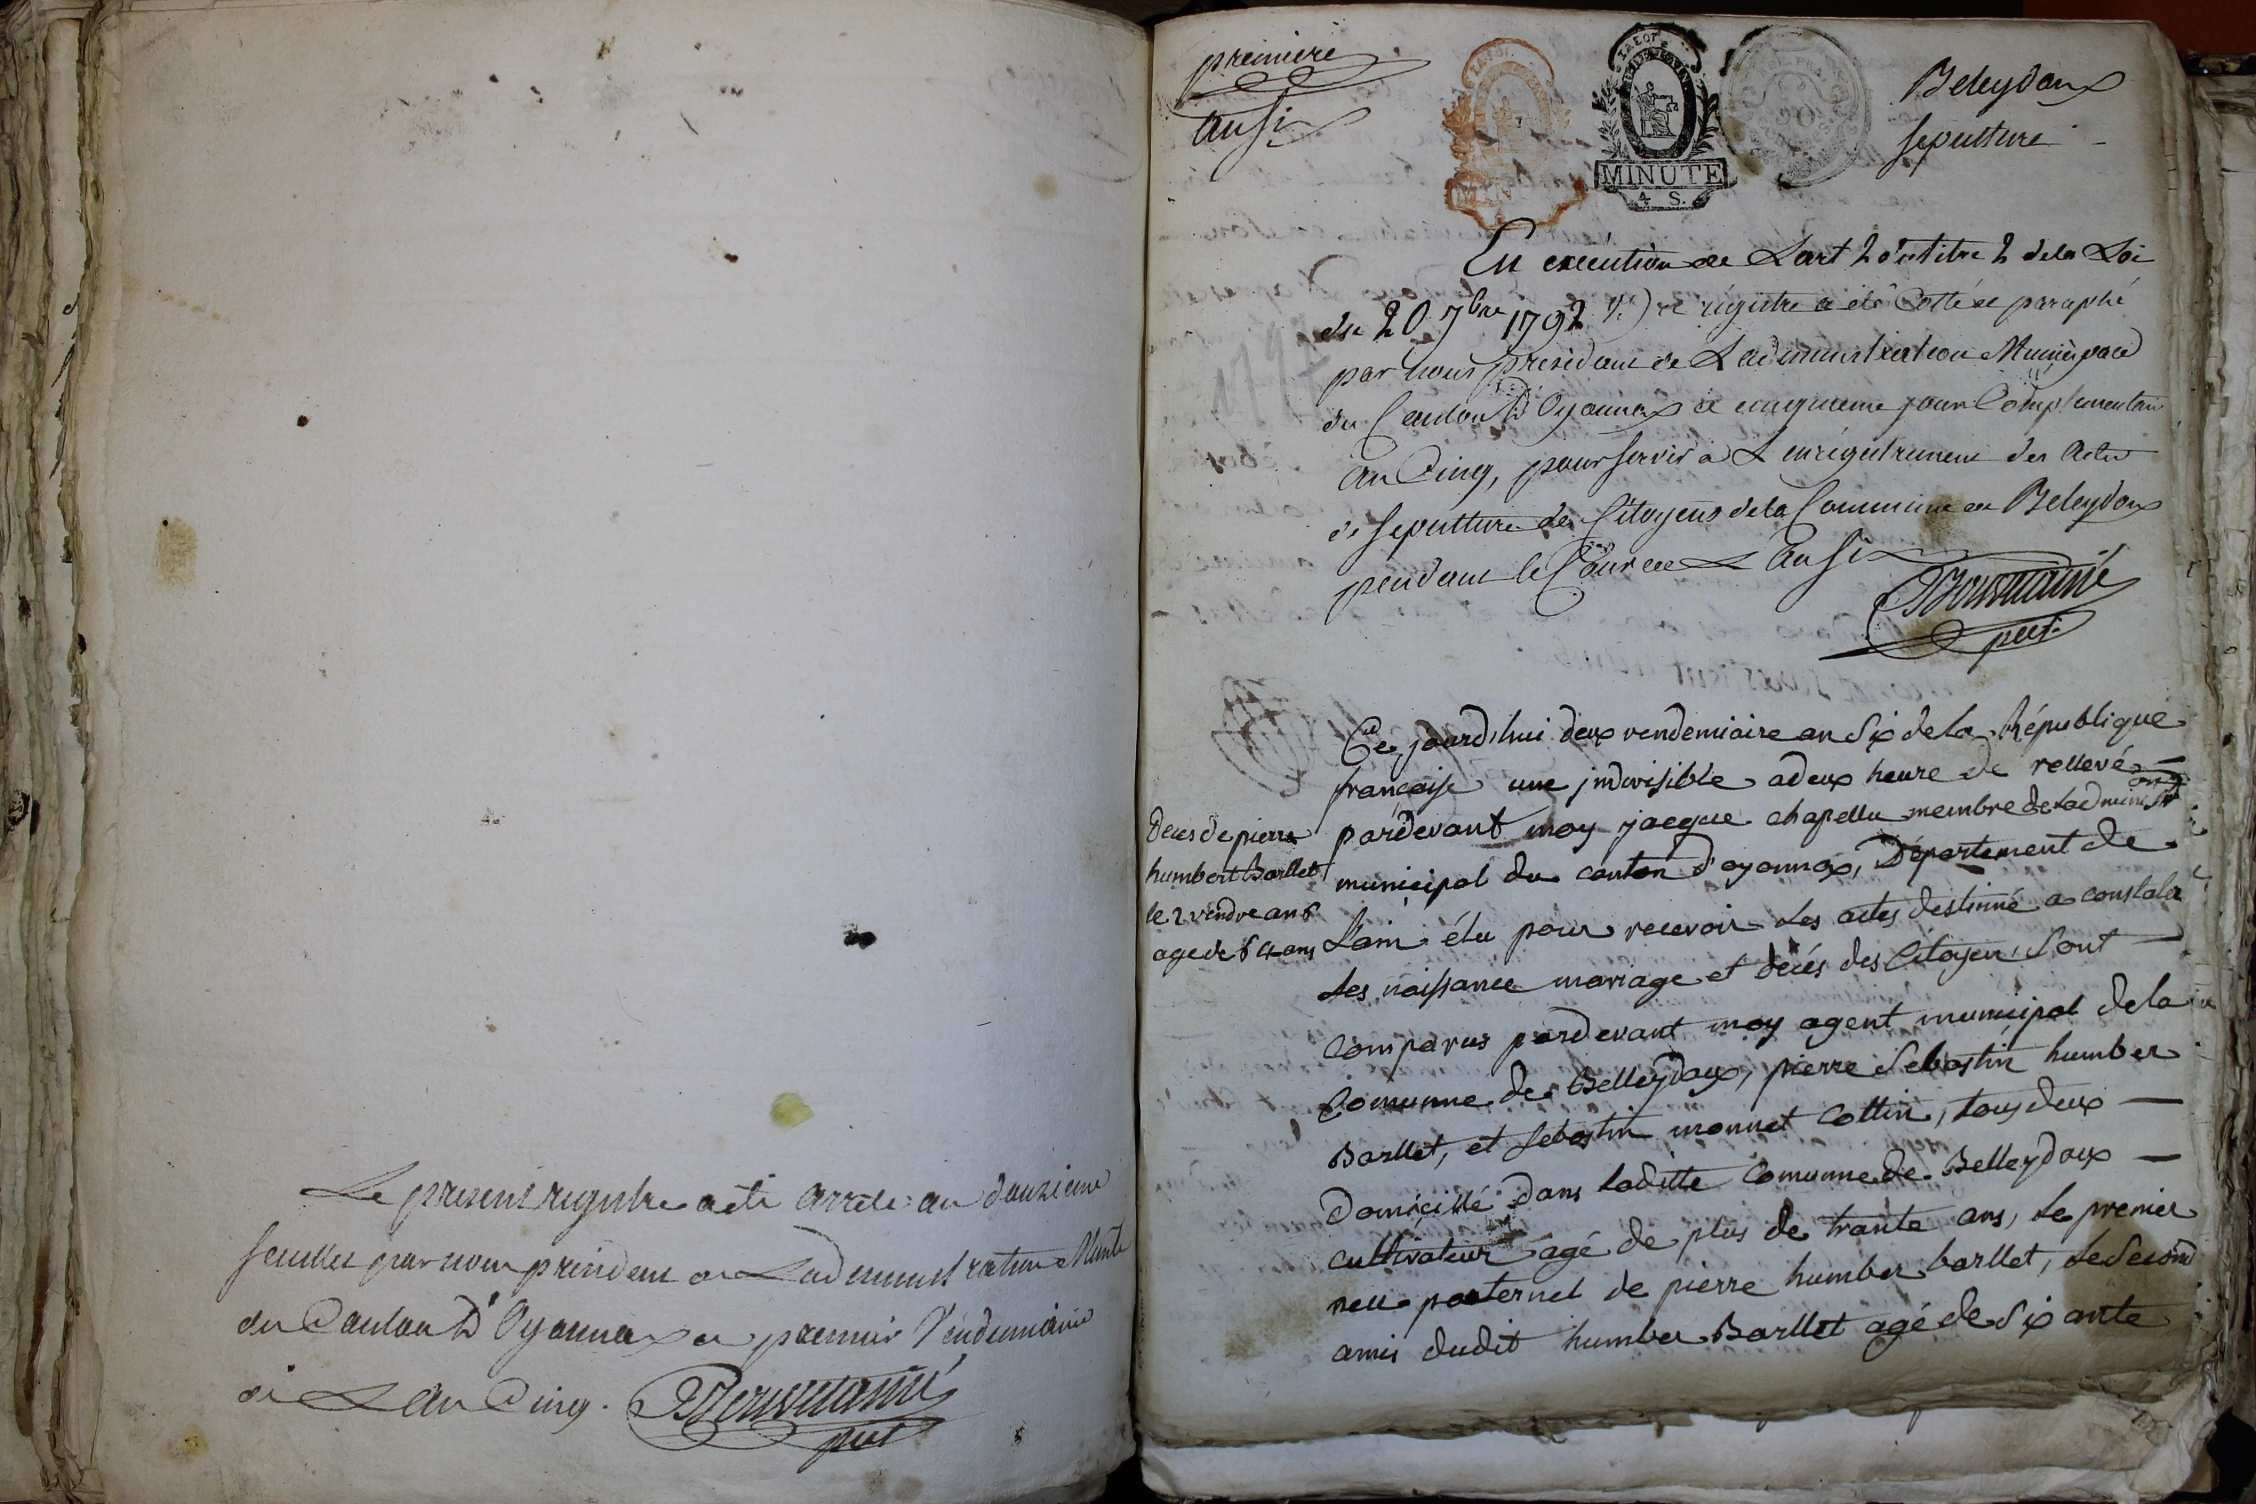 Le present registre a été arreté au douzieme
feuillet par nous président de L'administration Munle
du Canton D'Oyonnax ce premier Vendemiaire
de L'an Cinq.
pdt
premiere
an six
MINUTE
4 S.
Beleydoux
sepulture
En execution de L'art 2 du titre 2 de la Loi
du 20 7bre 1792 ce régistre a été Cotté et paraphé
par nous president de L'administration Municipale
du Canton D'Oyonnax ce cinquieme jour Complementaire
an Cinq, pour servir à L'enrégistrement des actes
de sepulture des Citoyens de la Commune de Beleydoux
pendant le Cour de L'an six
Ce jourd'hui deux vendemiaire an Six de la République
française une indivisible a deux heure de rellevé
pardevant moy jacque chapellu membre de l'administration
municipal du canton d'oyonnax, Département de
L'ain élu pour recevoir Les actes destinné a constater
Les naissance mariage et décés des Citoyen, Sont
Comparus pardevant moy agent municipal de la
Comunne de Belleydoux, pierre Sebastin humber
Barllet, et Sebastin monnet Cottin, tous deux
Domicillé dans Laditte Comunne de Belleydoux
cultivateur agé de plus de trante ans, Le premier
neu paternel de pierre humber barllet, Le Second
amis dudit humber Barllet agé de Sixante
Deces de pierre
humbert Barllet
le 2 vendre an 6
age de 64 ans